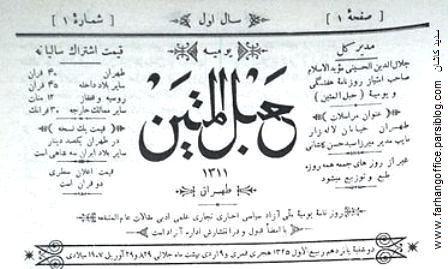 [ صفحهٔ ۱ ]
سال اول
[ شمارهٔ ۱ ]
مدیر کل
جلال‌الدین الحسینی مؤیدالاسلام
صاحب امتیاز روزنامهٔ هفتگی
و یومیهٔ ( حبل المتین )
( عنوان مراسلات )
طهران خیابان لاله زار
نایب مدیر میرزا سید حسن کاشانی
غیر از روز های جمعه همه روزه
طبع و توزیع میشود
یومیه
حبل المتین
۱۳۱۱
طهران
قیمت اشتراک سالیانه
طهران ۴۰ قران
سایر بلاد داخله ۴۵ قران
روسیه و قفقاز ۱۲ منات
سایر ممالک خارجه ۳۰ فرانک
قیمت یک نسخه
در طهران یکصد دینار
سایر بلاد ایران سه شاهی است
قیمت اعلان سطری
دو قران است
روزنامهٔ یومیهٔ ملی آزاد سیاسی اخباری تجاری علمی ادبی مقالات عام‌المنفعه
با امضا قبول و در انتشارش اداره آزاد است
دوشنبهٔ پانزدهم ربیع الاول ۱۳۲۵ هجری قمری و ۹ اردی بهشت ماه جلالی ۸۲۹ و ۲۹ آوریل ۱۹۰۷ میلادی
www.farhangoffice.parsiblog.com